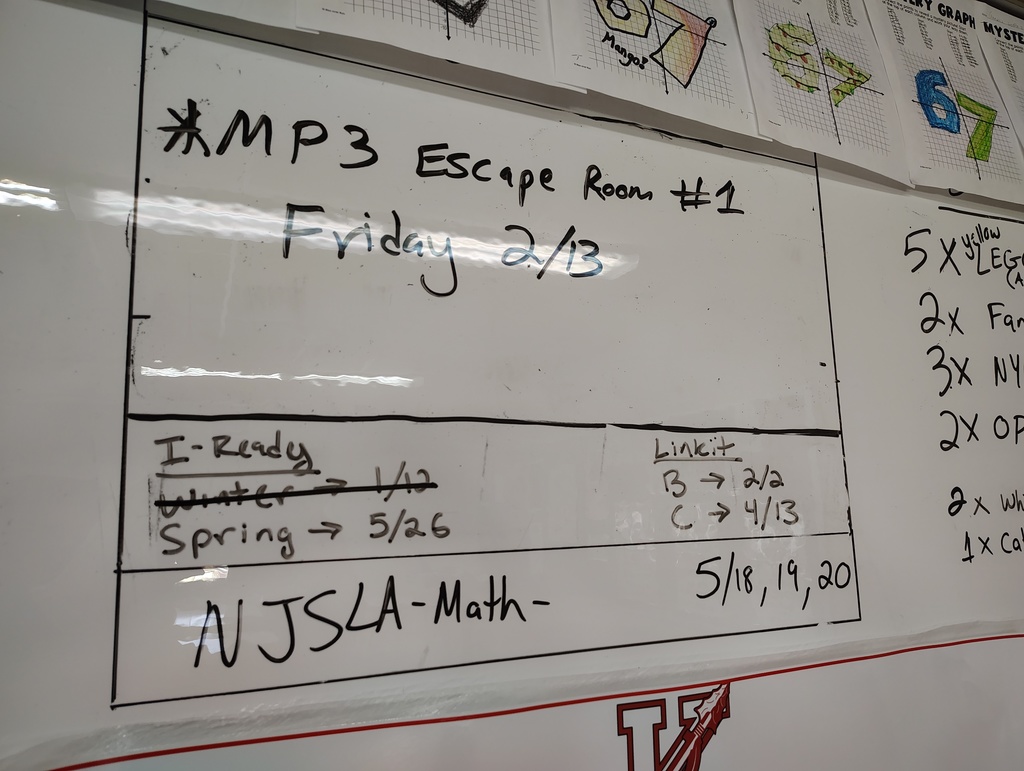 Mangos
67
67
67
ERY GRAPH MYSTE
*MP3 Escape Room #1
Friday 2/13
I-Ready
Winter → 1/12
Spring → 5/26
Linkit
B → 2/2
C → 4/13
NJSLA-Math- 5/18, 19, 20
5X yellow LEG
(A
2x Fan
3X NY
2X OP
2x Wh
1x Ca
V